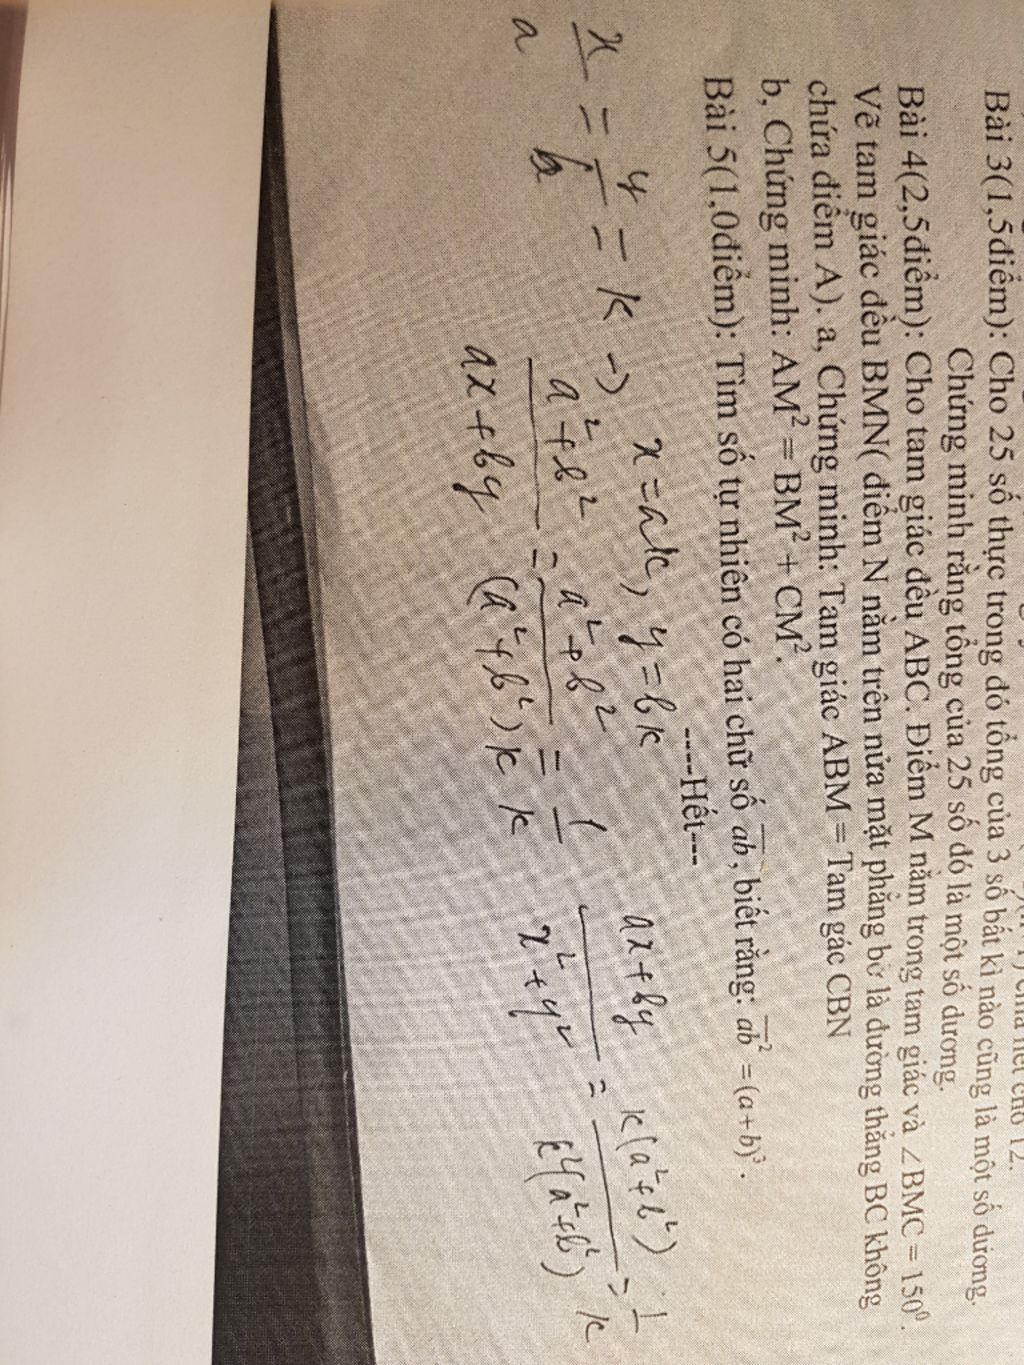 chia hết cho 12.
Bài 3(1,5điểm): Cho 25 số thực trong đó tổng của 3 số bất kì nào cũng là một số dương.
Chứng minh rằng tổng của 25 số đó là một số dương.
Bài 4(2,5điểm): Cho tam giác đều ABC. Điểm M nằm trong tam giác và ∠BMC = 150⁰.
Vẽ tam giác đều BMN( điểm N nằm trên nửa mặt phẳng bờ là đường thẳng BC không
chứa điểm A). a, Chứng minh: Tam giác ABM = Tam gác CBN
b, Chứng minh: AM² = BM² + CM².
Bài 5(1,0điểm): Tìm số tự nhiên có hai chữ số \overline{ab}, biết rằng: \overline{ab}² = (a+b)³.
----Hết---
x/a = y/b = k → x = ak, y = bk
(a²+b²)/(ax+by) = (a²+b²)/((a²+b²)k) = 1/k
(ax+by)/(x²+y²) = k(a²+b²)/(k²(a²+b²)) = 1/k